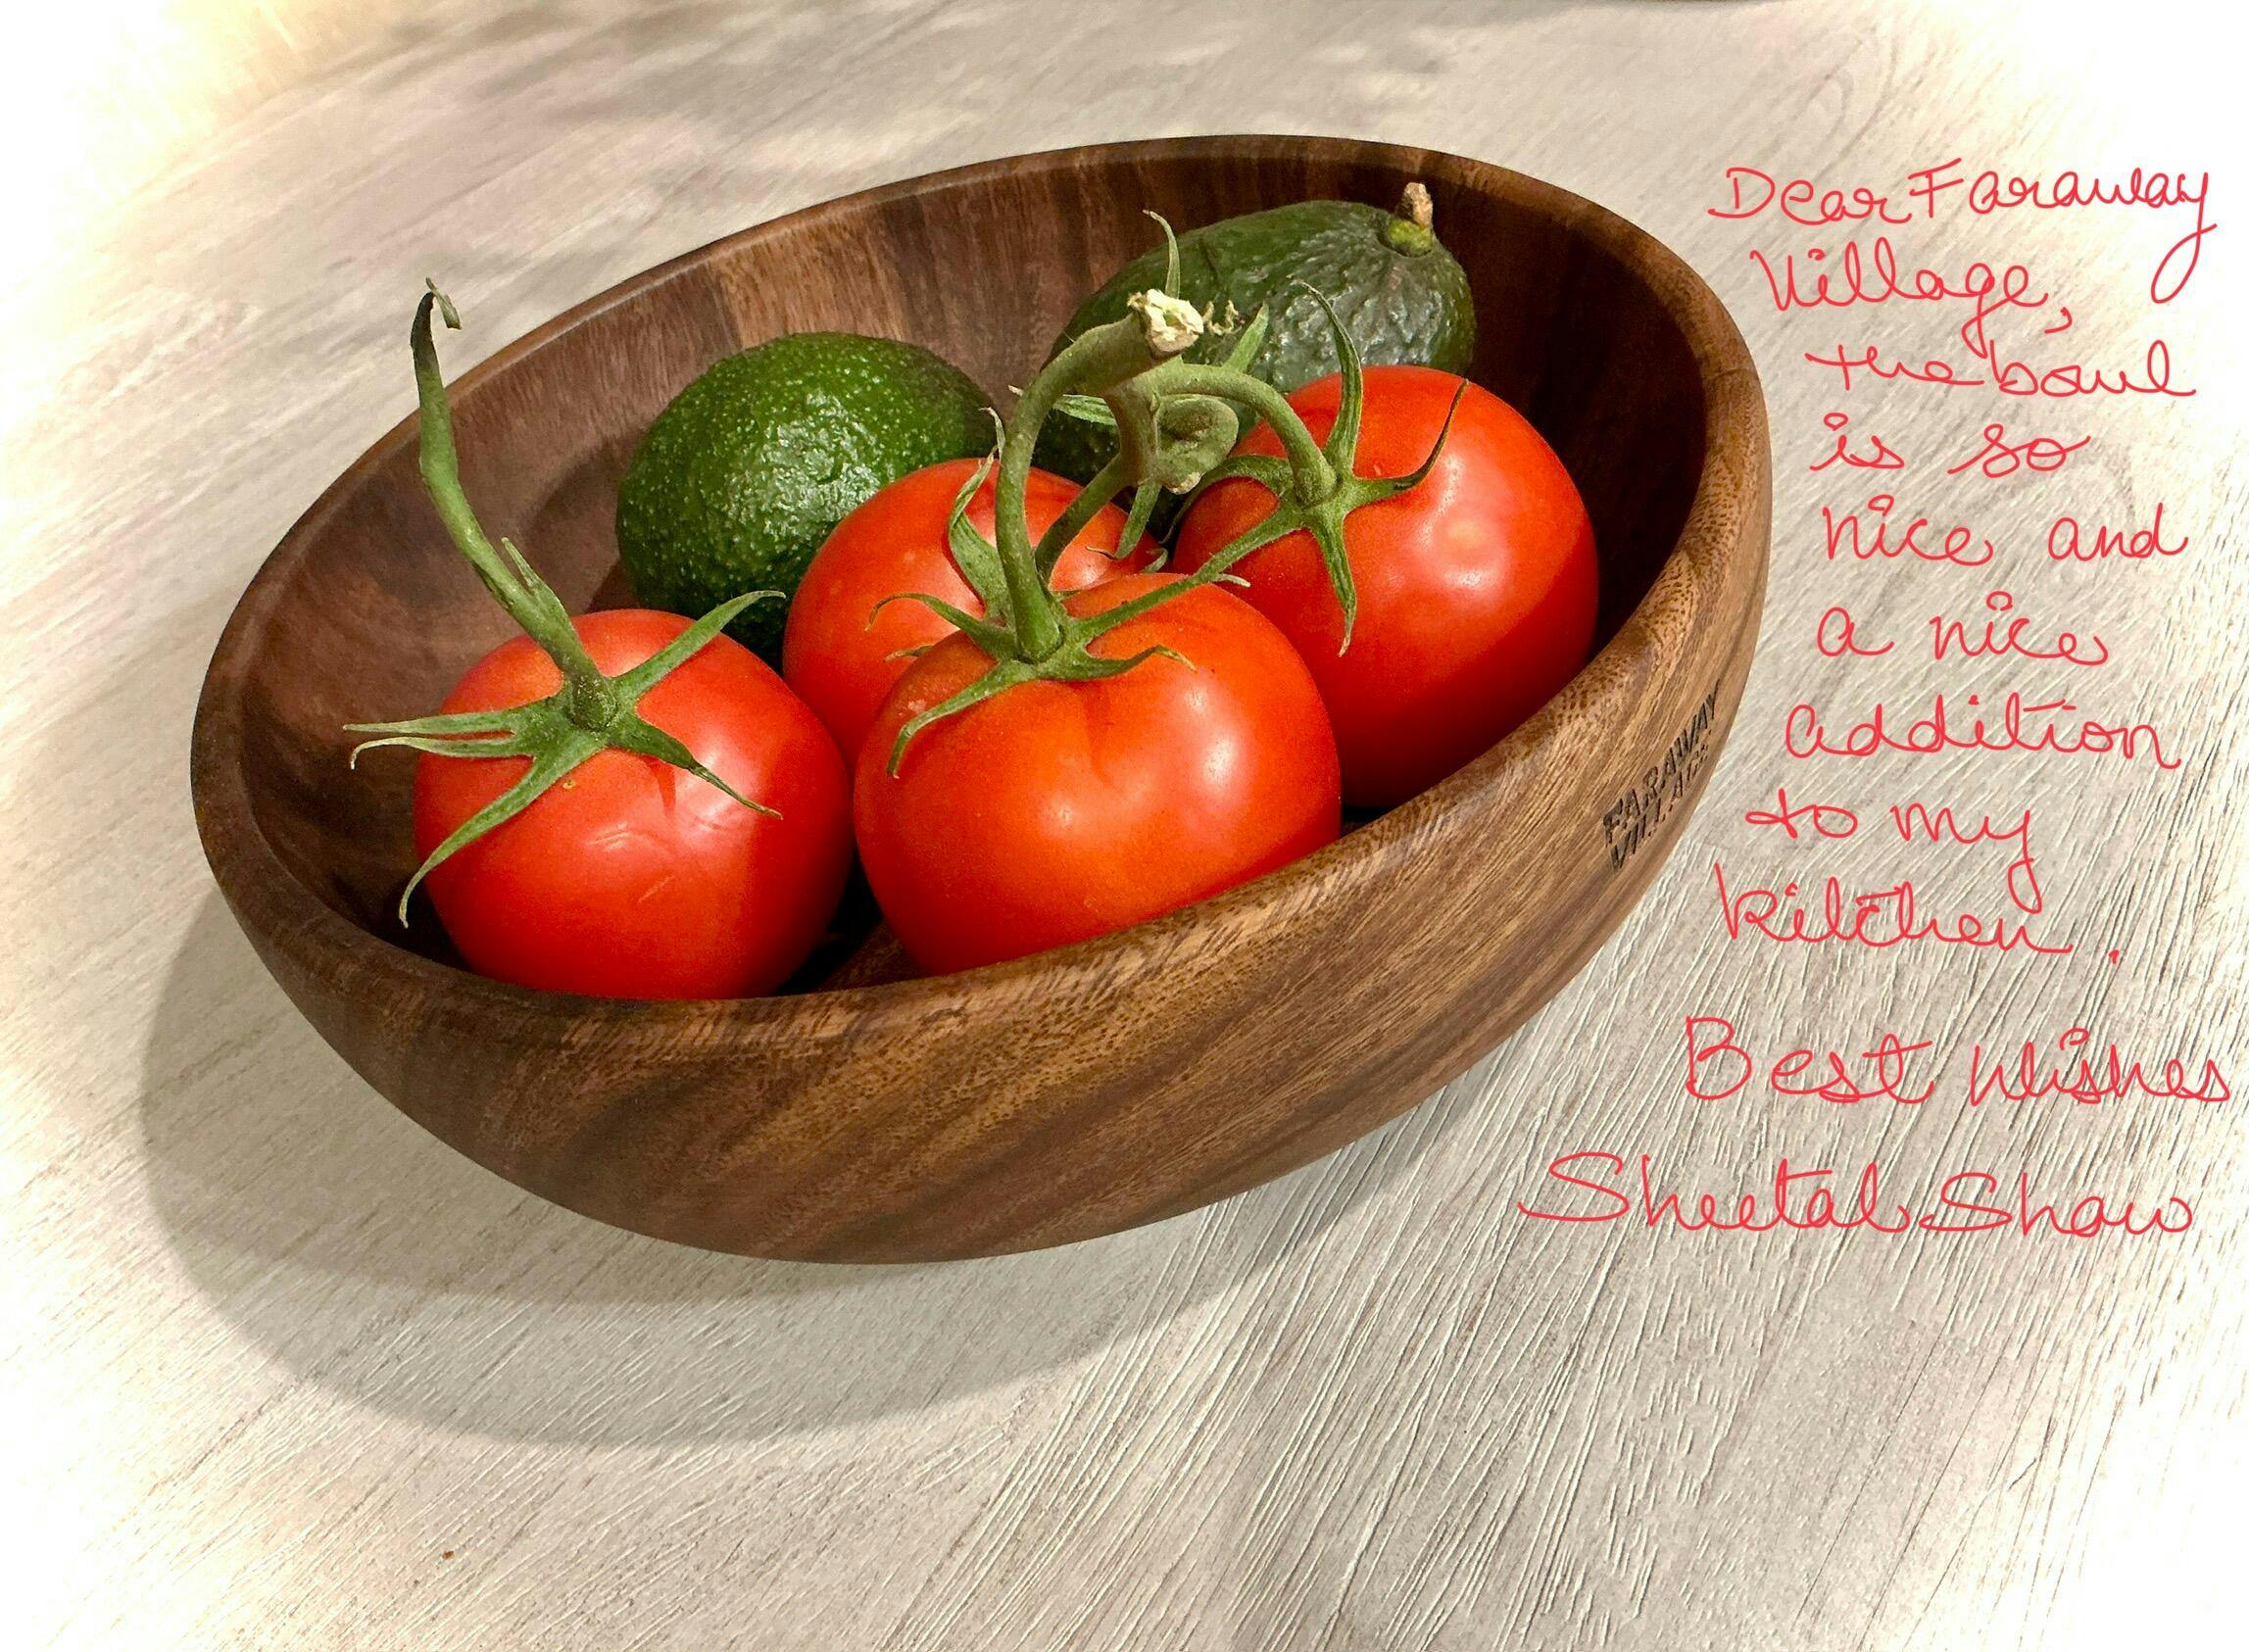 Dear Faraway
Village,
the bowl
is so
nice and
a nice
addition
to my
kitchen.
Best wishes
Sheetal Shaw
FARAWAY
VILLAGE